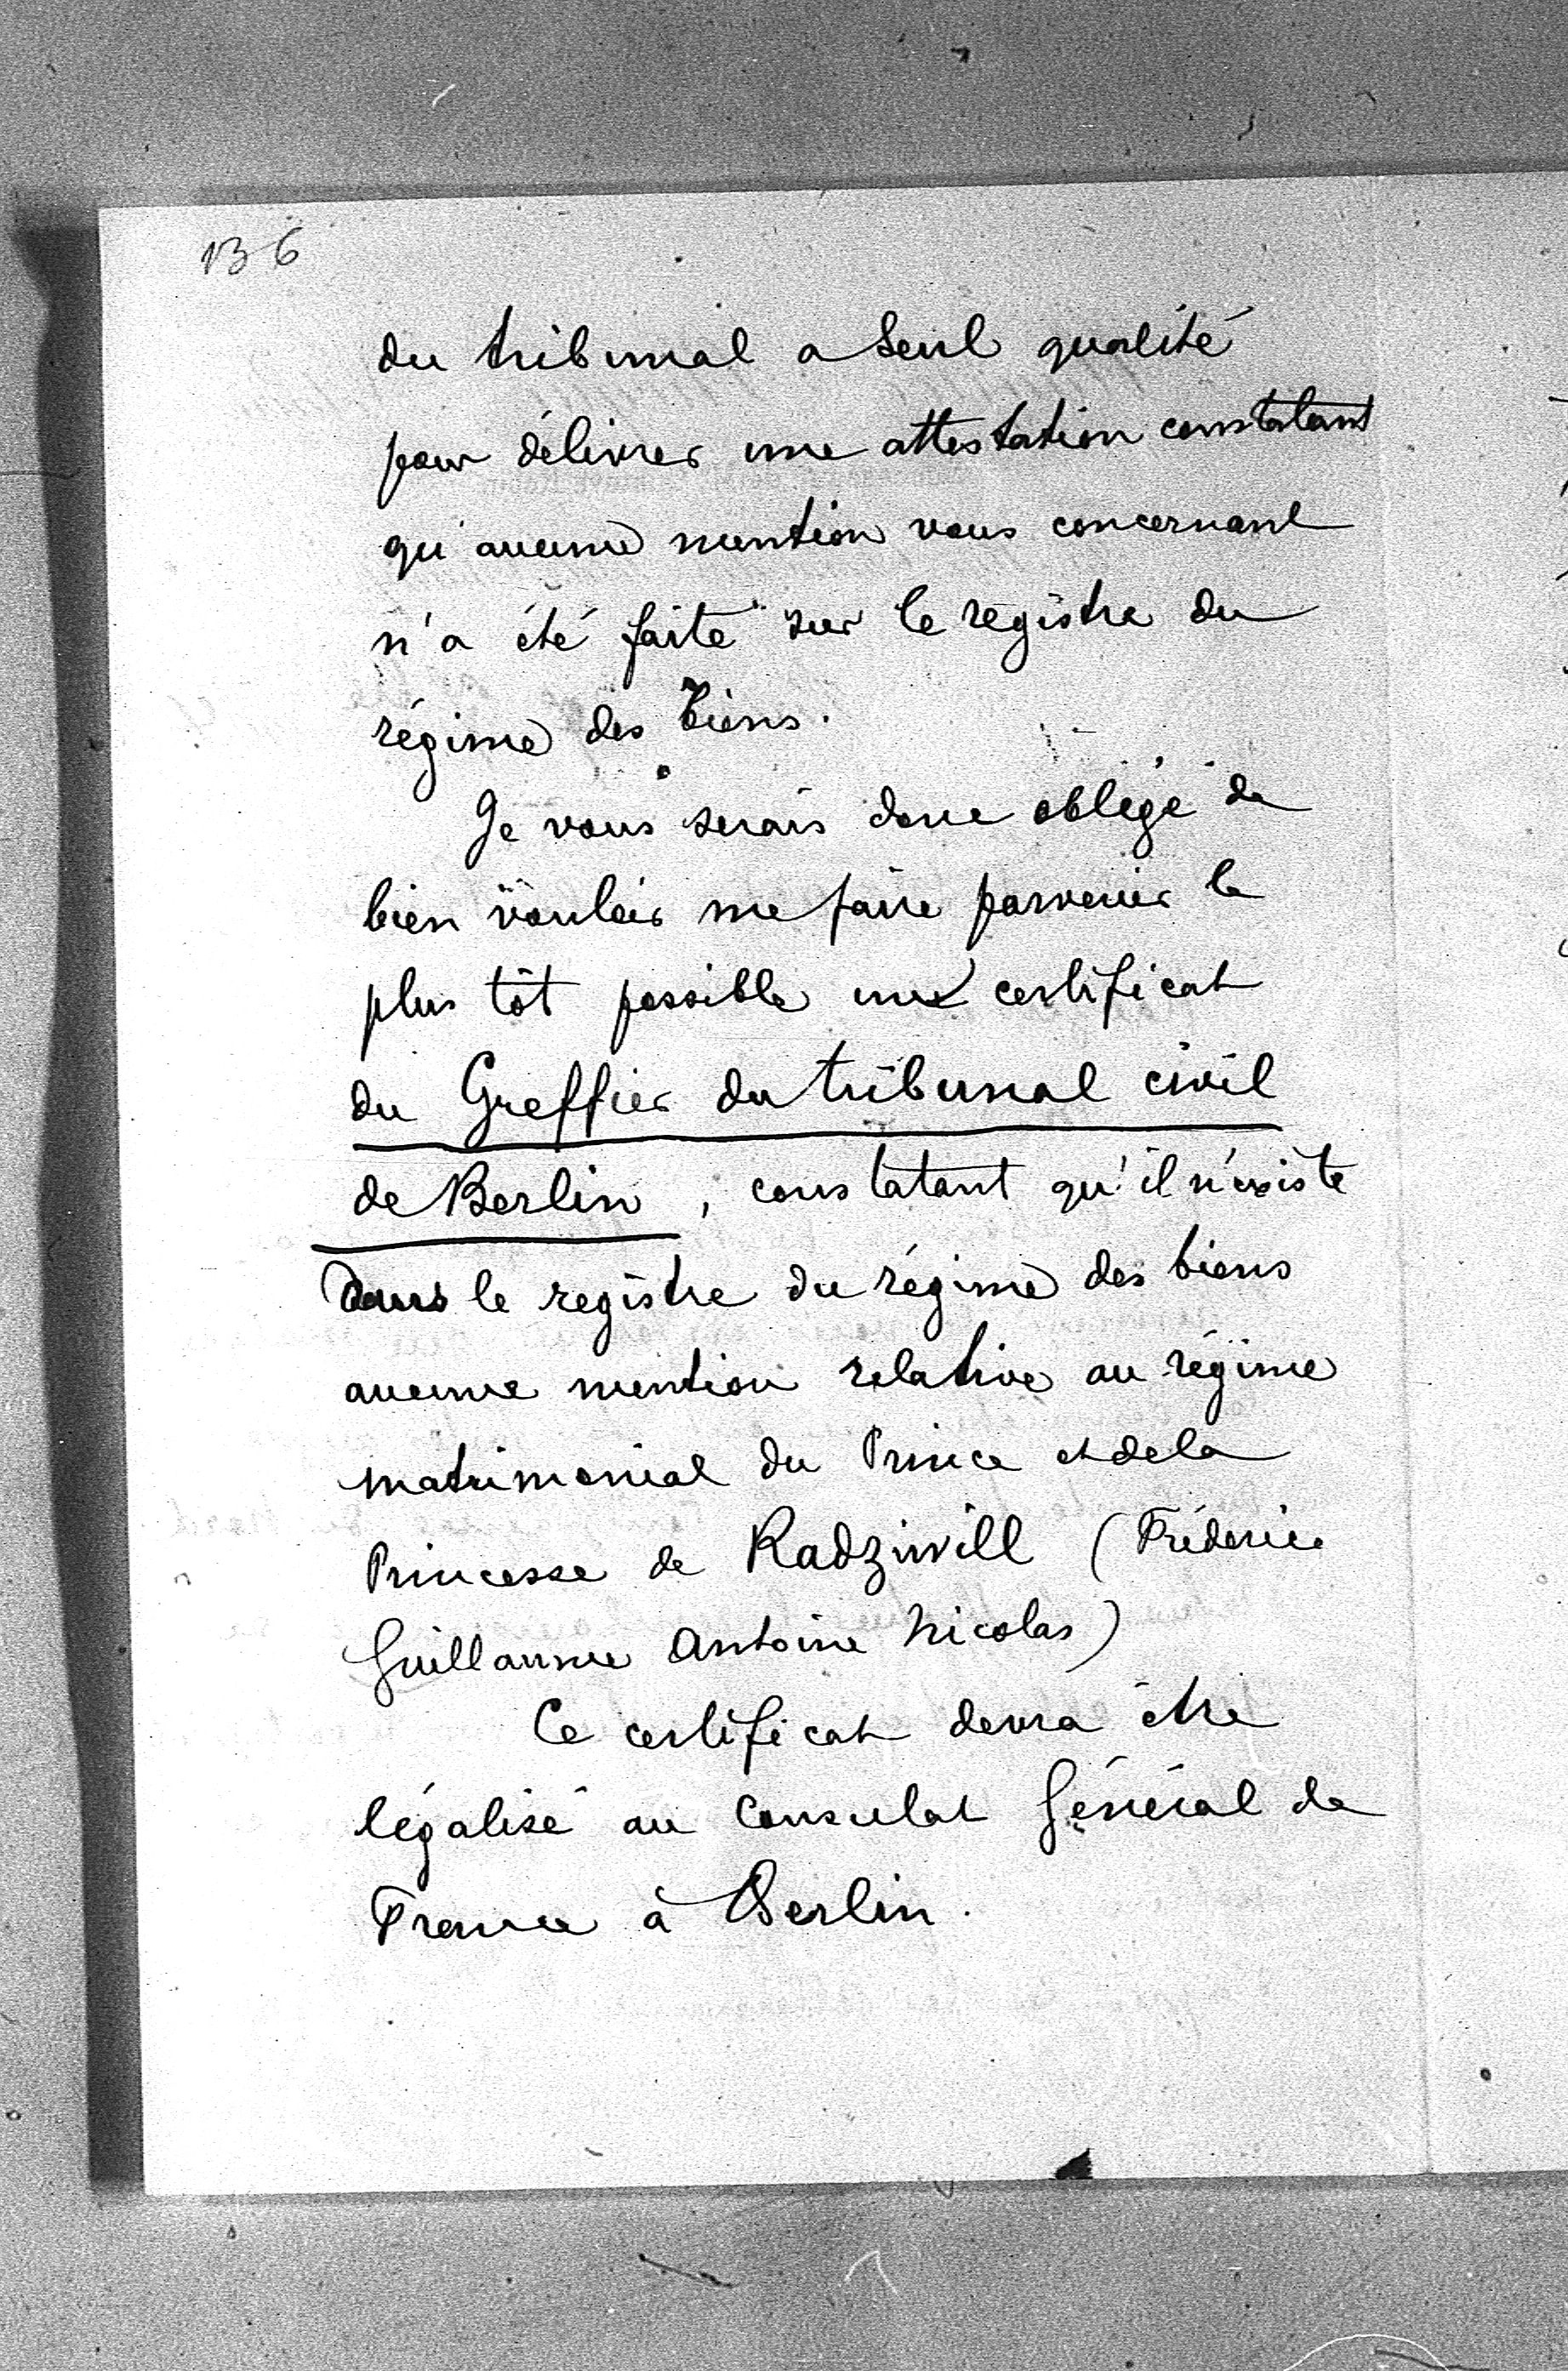 136
du tribunal a seul qualité
pour délivrer une attestation constatant
qu'aucune mention vous concernant
n'a été faite sur le registre du
régime des biens.
Je vous serais donc obligé de
bien vouloir me faire parvenir le
plus tôt possible un certificat
du Greffier du tribunal civil
de Berlin, constatant qu'il n'existe
dans le registre du régime des biens
aucune mention relative au régime
matrimonial du Prince et de la
Princesse de Radziwill (Fréderic
Guillaume Antoine Nicolas)
Ce certificat devra être
légalisé au Consulat Général de
France à Berlin.